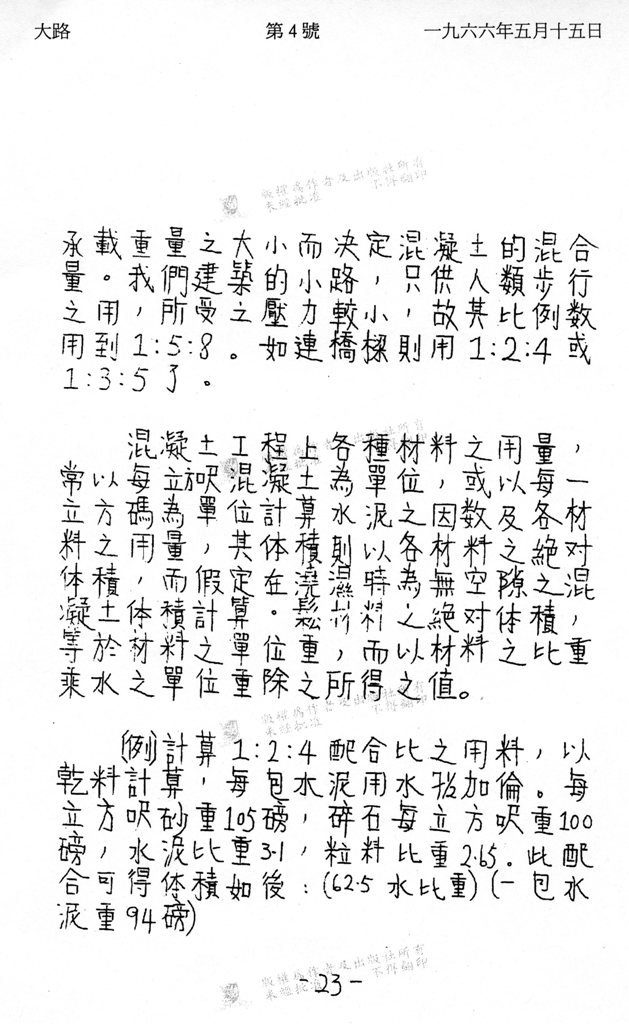 大路 第4號 一九六六年五月十五日
版權為作者及出版社所有
未經批准 不得翻印
承載重量之大小而決定，混凝土的混合
量。我們建築的小路，只供人類步行
之用，所受之壓力較小，故其比例数
用到1:5:8。如連橋樑則用1:2:4或
1:3:5了。
版權為作者及出版社所有
未經批准 不得翻印
混凝土工程上各種材料之用量，
常以每立方呎混凝土為單位，或以每一
立方碼為單位計算水泥之因数及各材
料之用量，其体積則以各材料之絕对
体積，而假定在澆濕時為無空隙之混
凝土体積計算。鬆材料之絕对体積，
等於材料之單位重，而以材料之比重
乘水之單位重除之所得之值。
版權為作者及出版社所有
未經批准 不得翻印
(例)計算1:2:4配合比之用料，以
乾料計算，每包水泥用水加倫。每
立方呎砂重105磅，碎石每立方呎重100
磅，水泥比重3.1，粒料比重2.65.此配
合可得体積如後：(62.5水比重)(一包水
泥重94磅)
版權為作者及出版社所有
未經批准 不得翻印
-23-